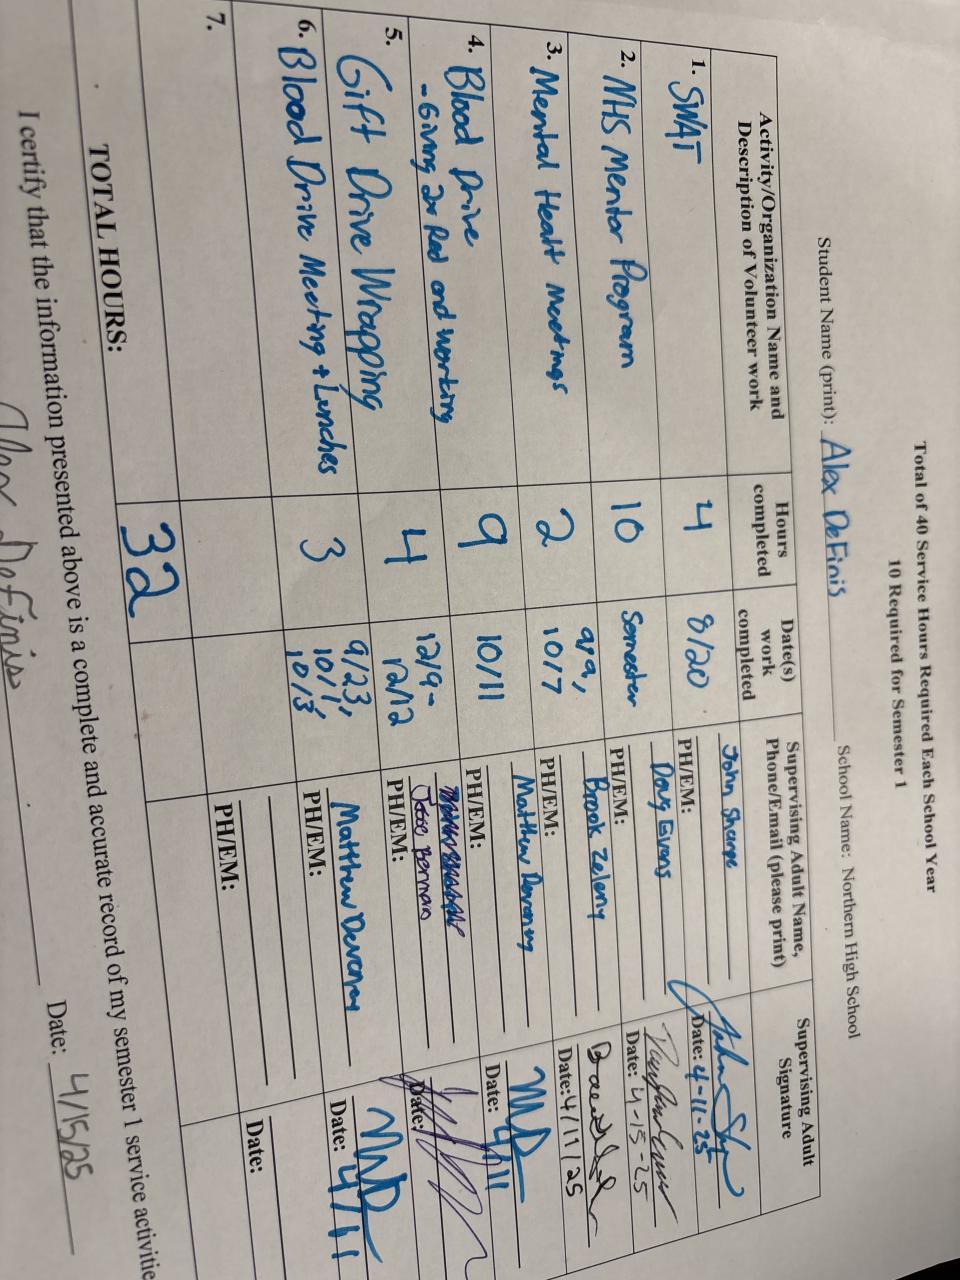 Total of 40 Service Hours Required Each School Year
10 Required for Semester 1
Student Name (print): Alex DeFinis School Name: Northern High School
Activity/Organization Name and Description of Volunteer work
Hours completed
Date(s) work completed
Supervising Adult Name, Phone/Email (please print)
Supervising Adult Signature
1. SWAT
4
8/20
John Sharpe
PH/EM:
Date: 4-11-25
2. NHS Mentor Program
10
Semester
Doug Evans
PH/EM:
Date: 4-15-25
3. Mental Healt Meetings
2
9/9,
10/7
Brook Zeleny
PH/EM:
Date: 4/11/25
4. Blood Drive
- Giving 2x Red and working
9
10/11
Matthew Devenney
PH/EM:
MD
Date: 4/11
5. Gift Drive Wrapping
4
12/9-
12/12
Jesse Berman
PH/EM:
Date:
6. Blood Drive Meeting + Lunches
3
9/23,
10/1,
10/3
Matthew Devenney
PH/EM:
MD
Date: 4/11
7.
PH/EM:
Date:
TOTAL HOURS: 32
I certify that the information presented above is a complete and accurate record of my semester 1 service
Alex DeFinis Date: 4/15/25